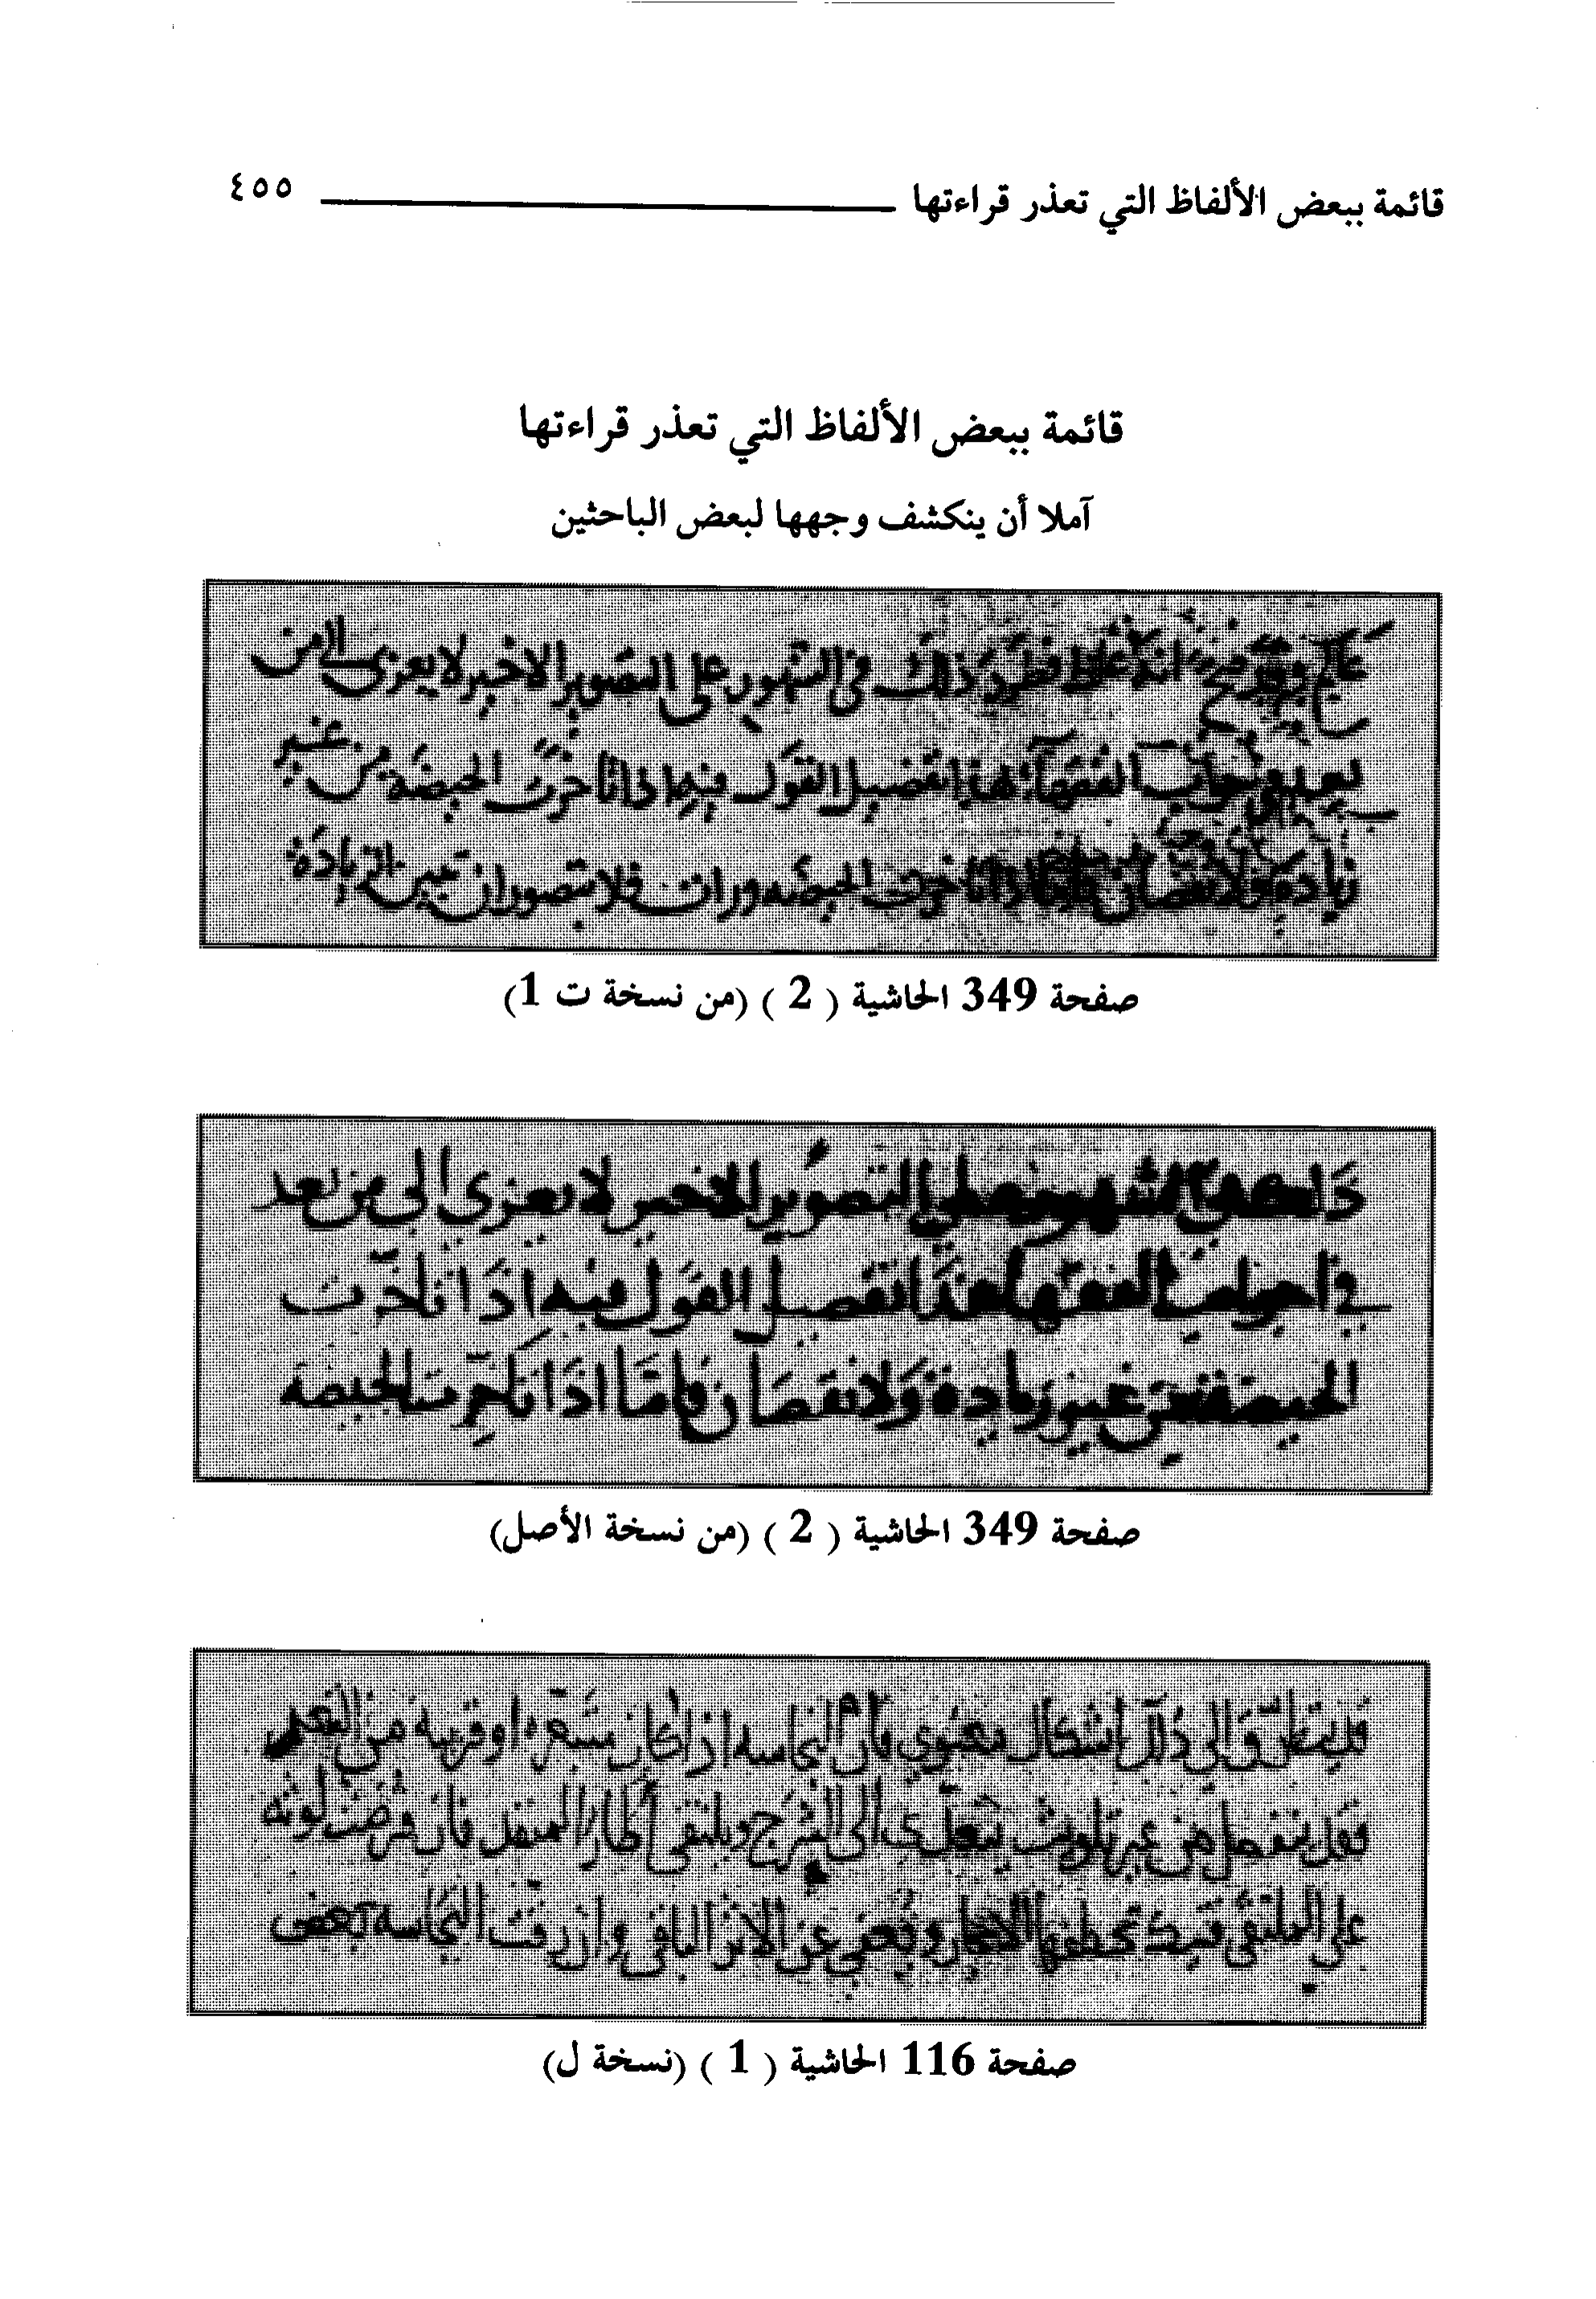 قائمة ببعض الألفاظ التي تعذر قراءتها ٤٥٥
قائمة ببعض الألفاظ التي تعذر قراءتها
آملا أن ينكشف وجهها لبعض الباحثين
ذلك في الشهور على التصوير الاخير لا يعزى الى من
الفقهاء هذا تفصيل القول فيه اذا تاخرت الحيضة من غير
زيادة ولا نقصان فاما اذا تاخرت الحيضه وزادت فلا يتصور ان تتبين الزيادة
صفحة 349 الحاشية ( 2 ) (من نسخة ت 1)
على التصوير الاخير لا يعزى الى من يعد
في احزاب الفقها هذا تفصيل القول فيه اذا تاخرت
الحيضة من غير زيادة ولا نقصان فاما اذا تاخرت الحيضة
صفحة 349 الحاشية ( 2 ) (من نسخة الأصل)
اشكال معنوي فان النجاسه اذا كان او قريبة من
فقد ينفصل من غير تلويث يتعدى الى الشرج وملتقى اطار المنفذ فان فرضت لوثه
على الملتقى الاحجار ويعفى عن الاثر الباقي وان رقت النجاسه بعض
صفحة 116 الحاشية ( 1 ) (نسخة ل)